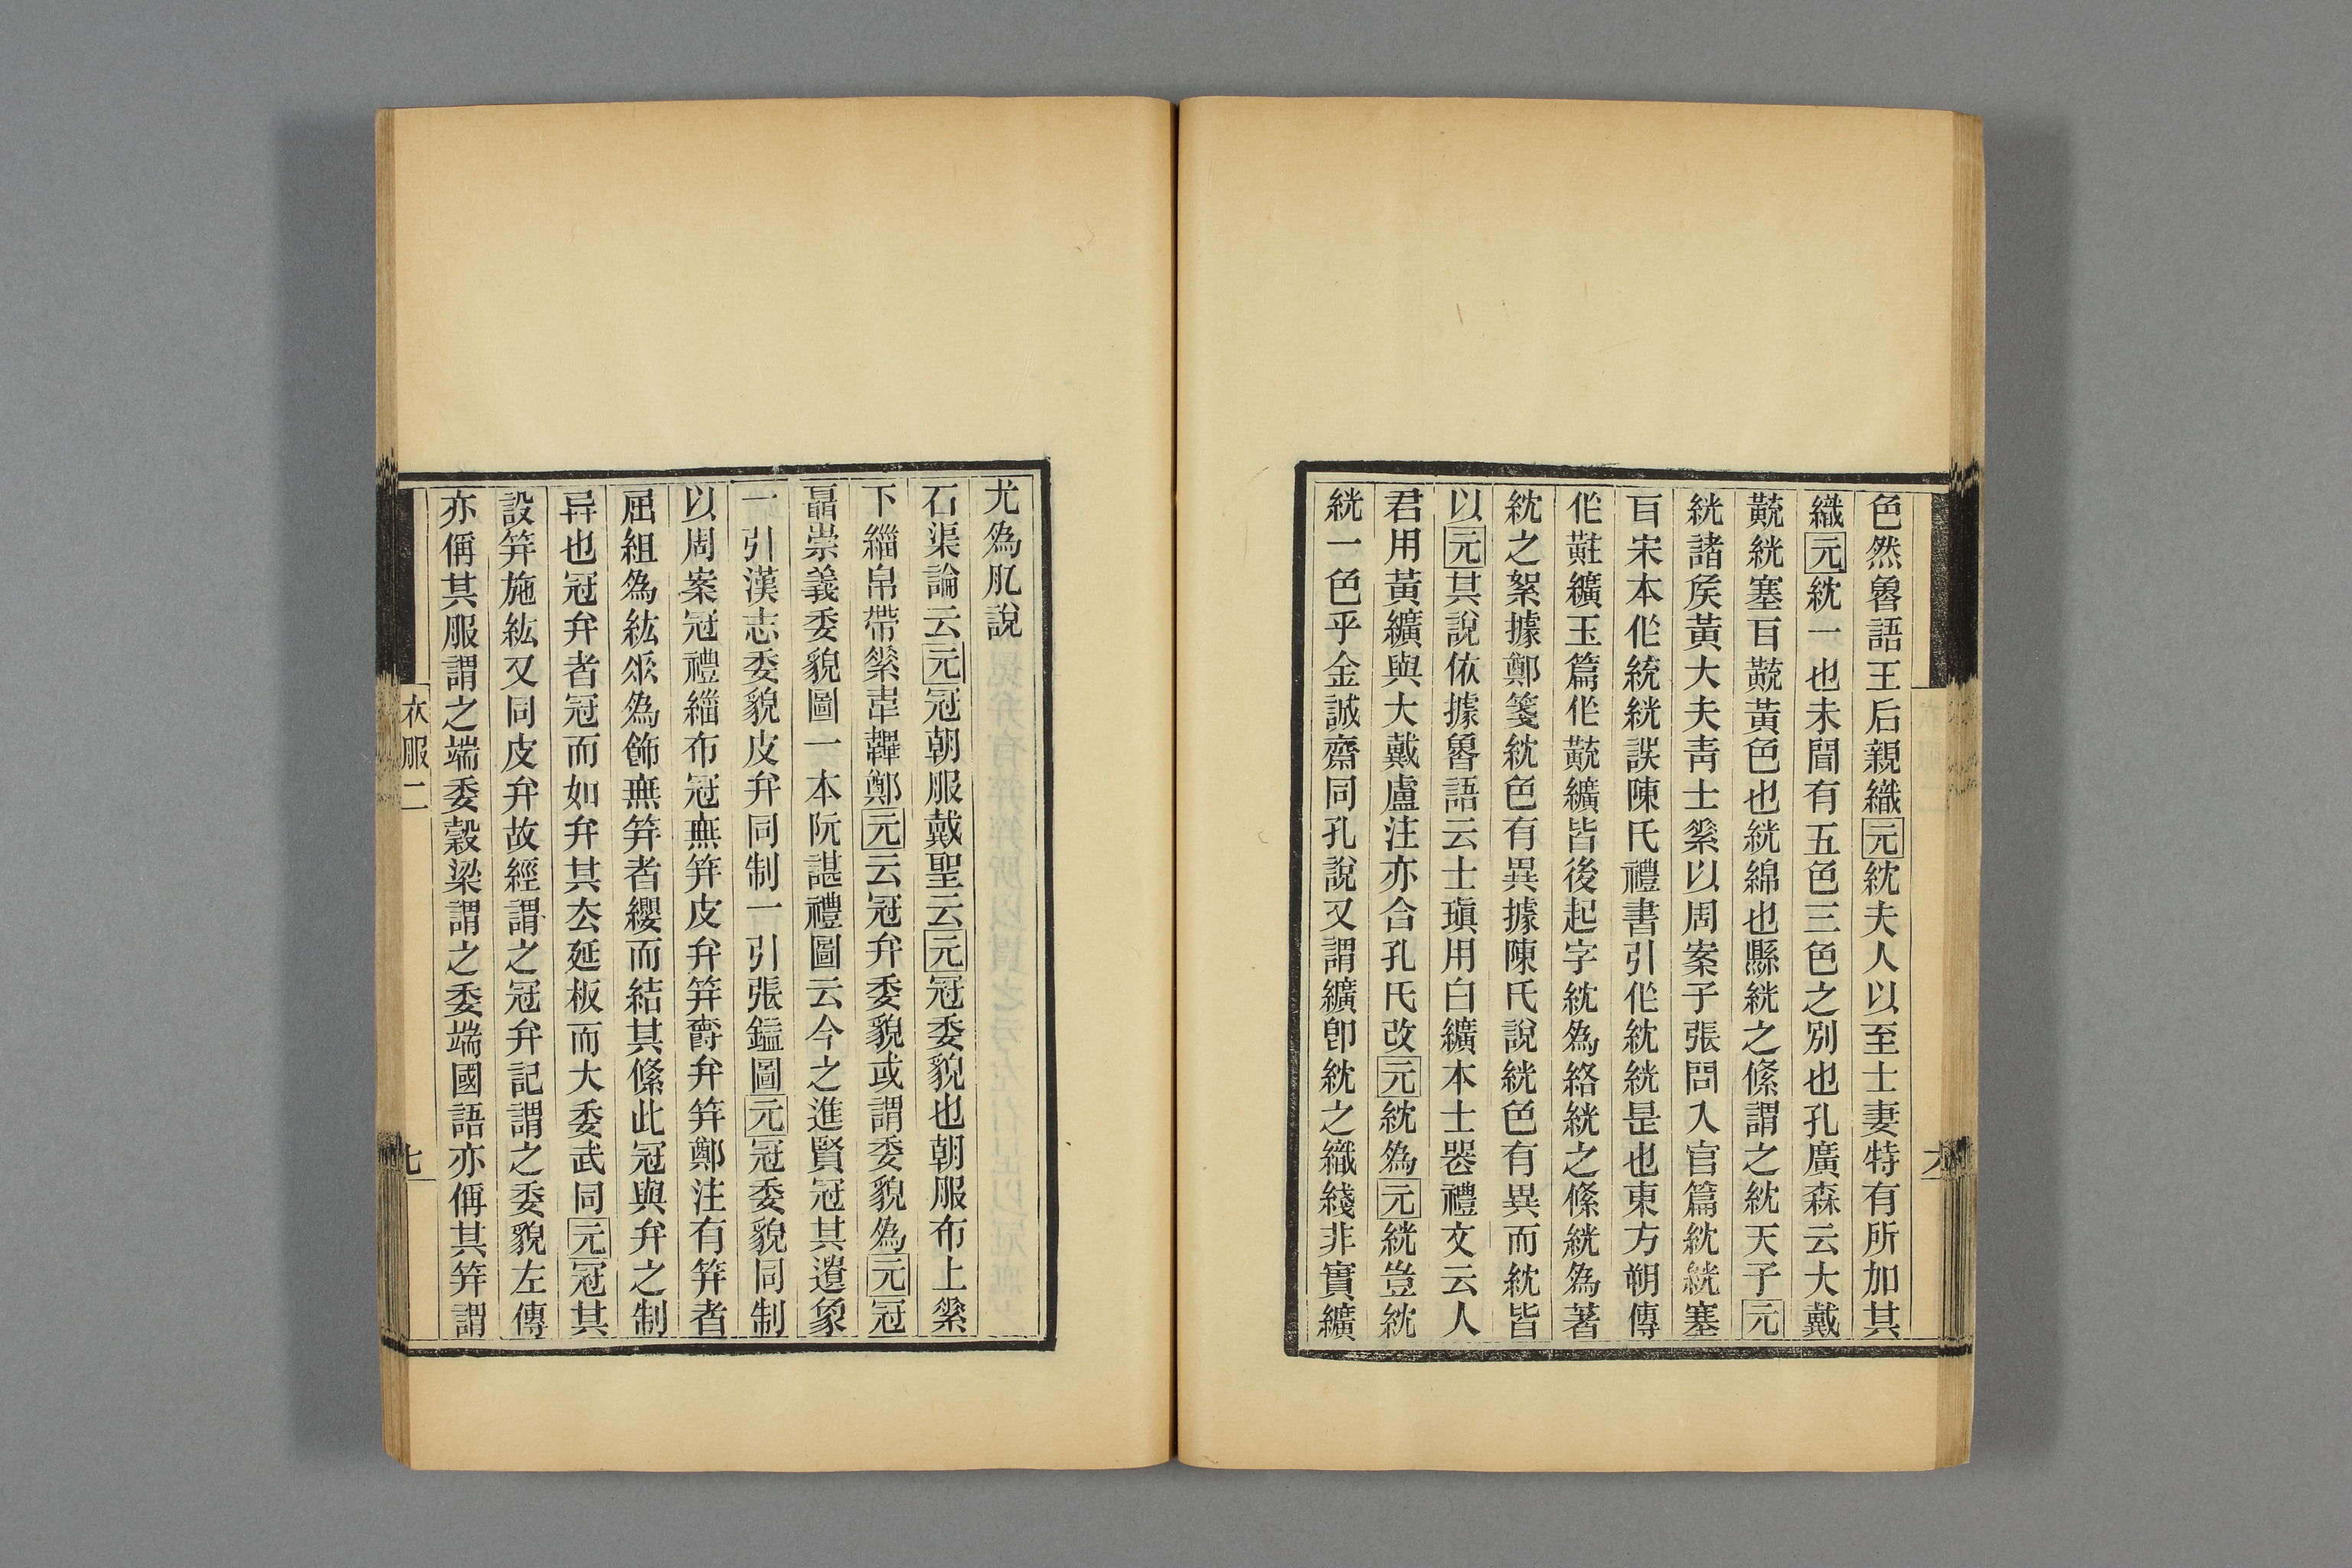 色然魯語王后親織元紞夫人以至士妻特有所加其
織元紞一也未聞有五色三色之別也孔廣森云大戴
黈絖塞耳黈黃色也絖綿也縣絖之絛謂之紞天子元
絖諸矦黃大夫靑士纂以周案子張問入官篇紞絖塞
耳宋本作統絖誤陳氏禮書引作紞絖是也東方朔傳
作黈纊玉篇作黈纊皆後起字紞爲絡絖之絛絖爲著
紞之絮據鄭箋紞色有異據陳氏說絖色有異而紞皆
以元其說依據魯語云士瑱用白纊本士器禮文云人
君用黃纊與大戴盧注亦合孔氏改元紞爲元絖豈紞
絖一色乎金誠齋同孔說又謂纊卽紞之織綫非實纊
六
尤爲肊說
石渠論云元冠朝服戴聖云元冠委貌也朝服布上纂
下緇帛帶纂韋韠鄭元云冠弁委貌或謂委貌爲元冠
聶崇義委貌圖一本阮諶禮圖云今之進賢冠其遺象
一引漢志委貌皮弁同制一引張鎰圖元冠委貌同制
以周案冠禮緇布冠無笄皮弁笄爵弁笄鄭注有笄者
屈組爲紘𠂹爲飾無笄者纓而結其絛此冠與弁之制
异也冠弁者冠而如弁其厺延板而大委武同元冠其
設笄施紘又同皮弁故經謂之冠弁記謂之委貌左傳
亦偁其服謂之端委穀梁謂之委端國語亦偁其笄謂
衣服二
七